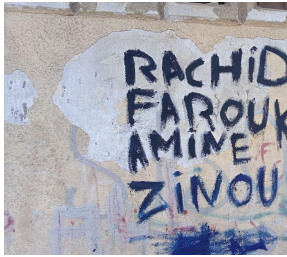 RACHiD
FAROUK
AMiNE
ZiNOU